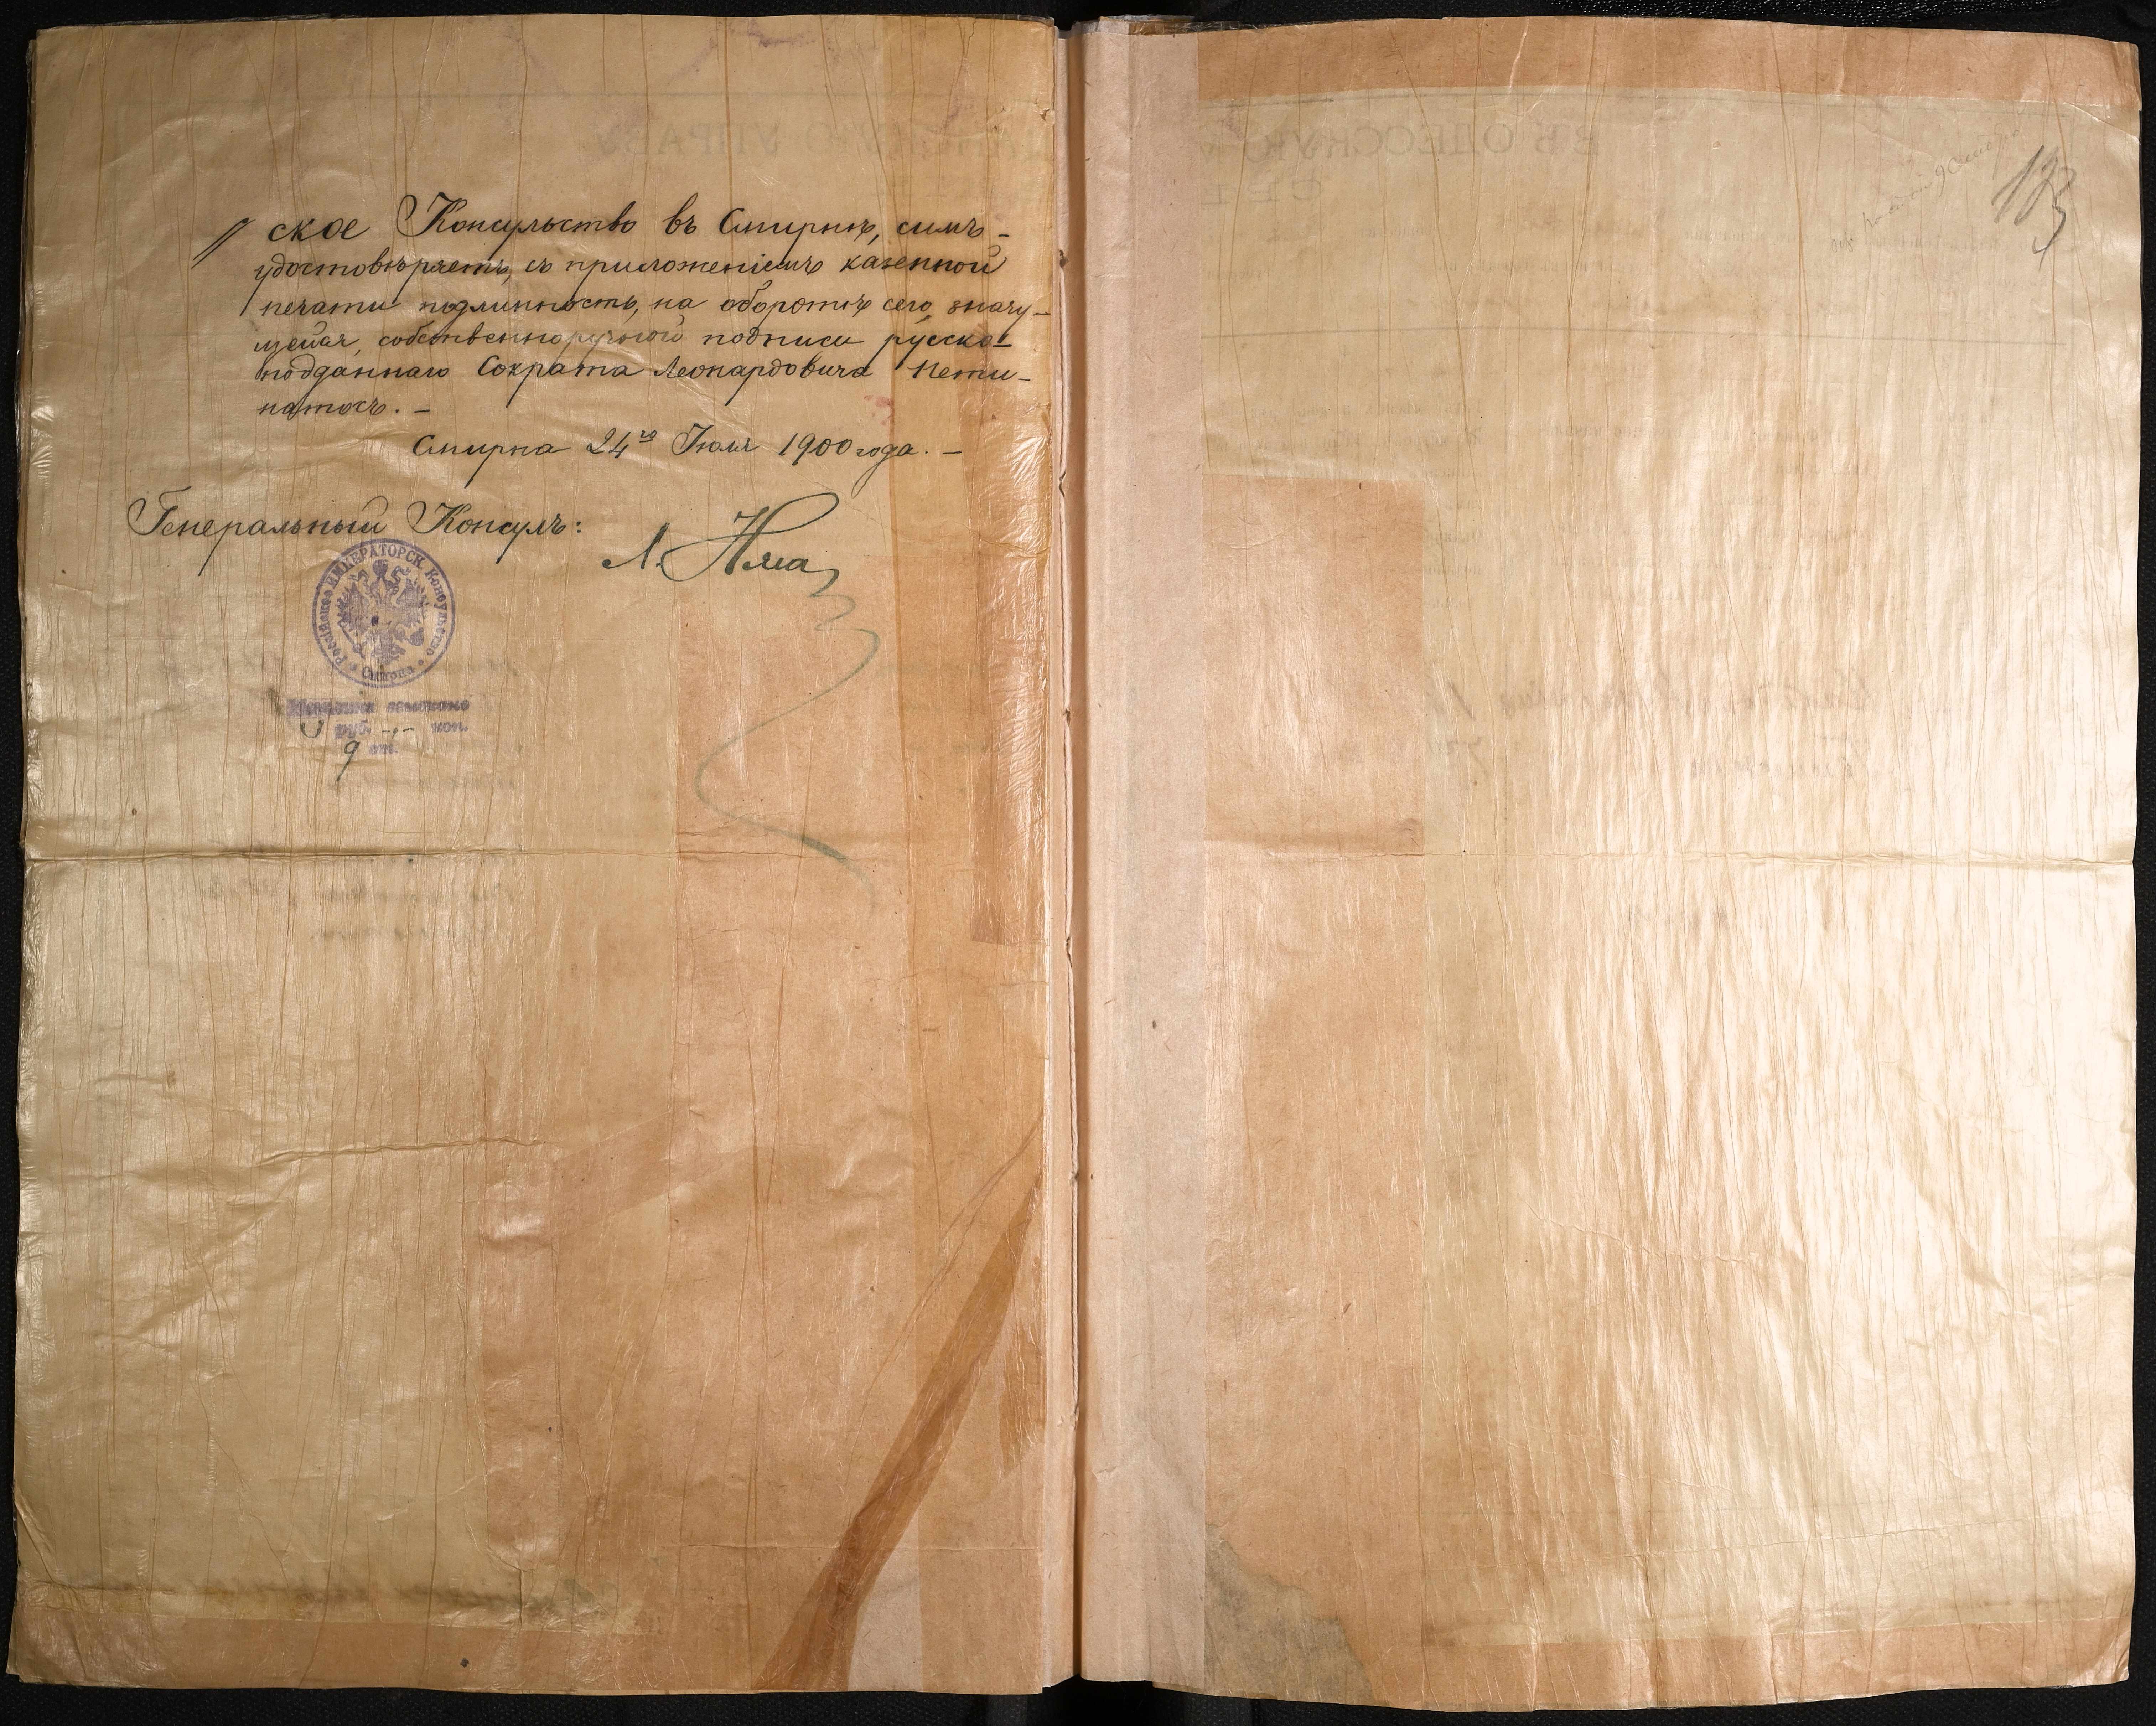 ское Консульство въ Смирнѣ, симъ -
удостовѣряетъ, съ приложеніемъ казенной
печати подлинность, на оборотѣ сего, значу-
щейся, собственноручной подписи русско-
подданнаго Сократа Леонардовича Пети-
натосъ. -
Смирна 24го Іюля 1900 года. -
Генеральный Консулъ:
Россійское ИМПЕРАТОРСК. Консульство
Смирна
взыскано
руб. -,- коп.
9
ВЪ ОДЕССКУЮ
УПРАВУ